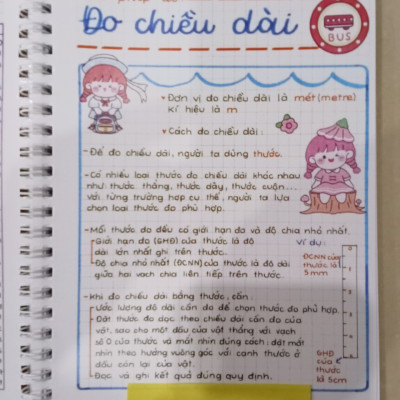 Đo chiều dài
BUS
• Đơn vị đo chiều dài là mét (metre)
kí hiệu là m
• Cách đo chiều dài:
- Để đo chiều dài, người ta dùng thước.
- Có nhiều loại thước đo chiều dài khác nhau
như: thước thẳng, thước dây, thước cuộn....
Với từng trường hợp cụ thể, người ta lựa
chọn loại thước đo phù hợp.
- Mỗi thước đo đều có giới hạn đo và độ chia nhỏ nhất.
Giới hạn đo (GHĐ) của thước là độ
dài lớn nhất ghi trên thước.
Độ chia nhỏ nhất (ĐCNN) của thước là độ dài
giữa hai vạch chia liên tiếp trên thước.
ví dụ:
ĐCNN của
thước là
5 mm
GHĐ
của thước
là 5cm
- Khi đo chiều dài bằng thước, cần:
Ước lượng độ dài cần đo để chọn thước đo phù hợp.
Đặt thước đo dọc theo chiều dài cần đo của
vật, sao cho một đầu của vật thẳng với vạch
số 0 của thước và mắt nhìn đúng cách: đặt mắt
nhìn theo hướng vuông góc với cạnh thước ở
đầu còn lại của vật.
Đọc và ghi kết quả đúng quy định.